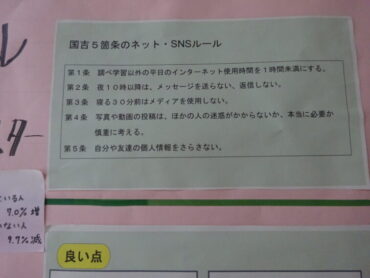 国吉５箇条のネット・SNSルール
第１条 調べ学習以外の平日のインターネット使用時間を１時間未満にする。
第２条 夜１０時以降は、メッセージを送らない、返信しない。
第３条 寝る３０分前はメディアを使用しない。
第４条 写真や動画の投稿は、ほかの人の迷惑がかからないか、本当に必要か
慎重に考える。
第５条 自分や友達の個人情報をさらさない。
ル
スター
ている人
7.0% 増
ない人
9.9% 減
良い点